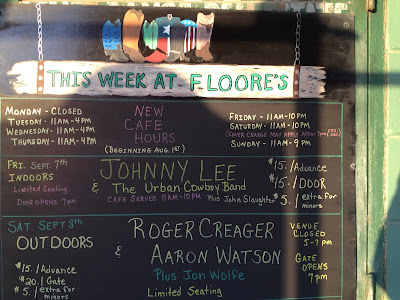 THIS WEEK AT FLOORE'S
MONDAY - CLOSED
TUESDAY - 11AM-4PM
WEDNESDAY - 11AM-4PM
THURSDAY - 11AM-4PM
NEW
CAFE
HOURS
(BEGINNING AUG. 1ST)
FRIDAY - 11AM-10PM
SATURDAY - 11AM-10PM
(COVER CHARGE MAY APPLY AFTER 7PM FRI/SAT)
SUNDAY - 11AM-9PM
FRI. SEPT. 7th
INDOORS
Limited Seating
DOOR OPENS 7pm
JOHNNY LEE
& The Urban Cowboy Band
CAFE SERVES 11AM-10PM Plus John Slaughter
$15./Advance
$15./DOOR
$5./extra for minors
SAT. SEPT 8th
OUTDOORS
$15./Advance
$20./Gate
$5./extra for minors
ROGER CREAGER
&
AARON WATSON
Plus Jon Wolfe
Limited Seating
VENUE
CLOSED
5-7pm
GATE
OPENS
7pm